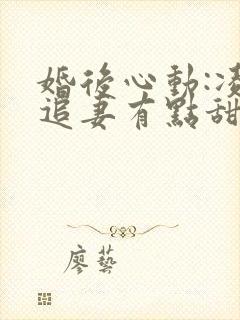 婚後心動:凌
追妻有點甜
廖藝